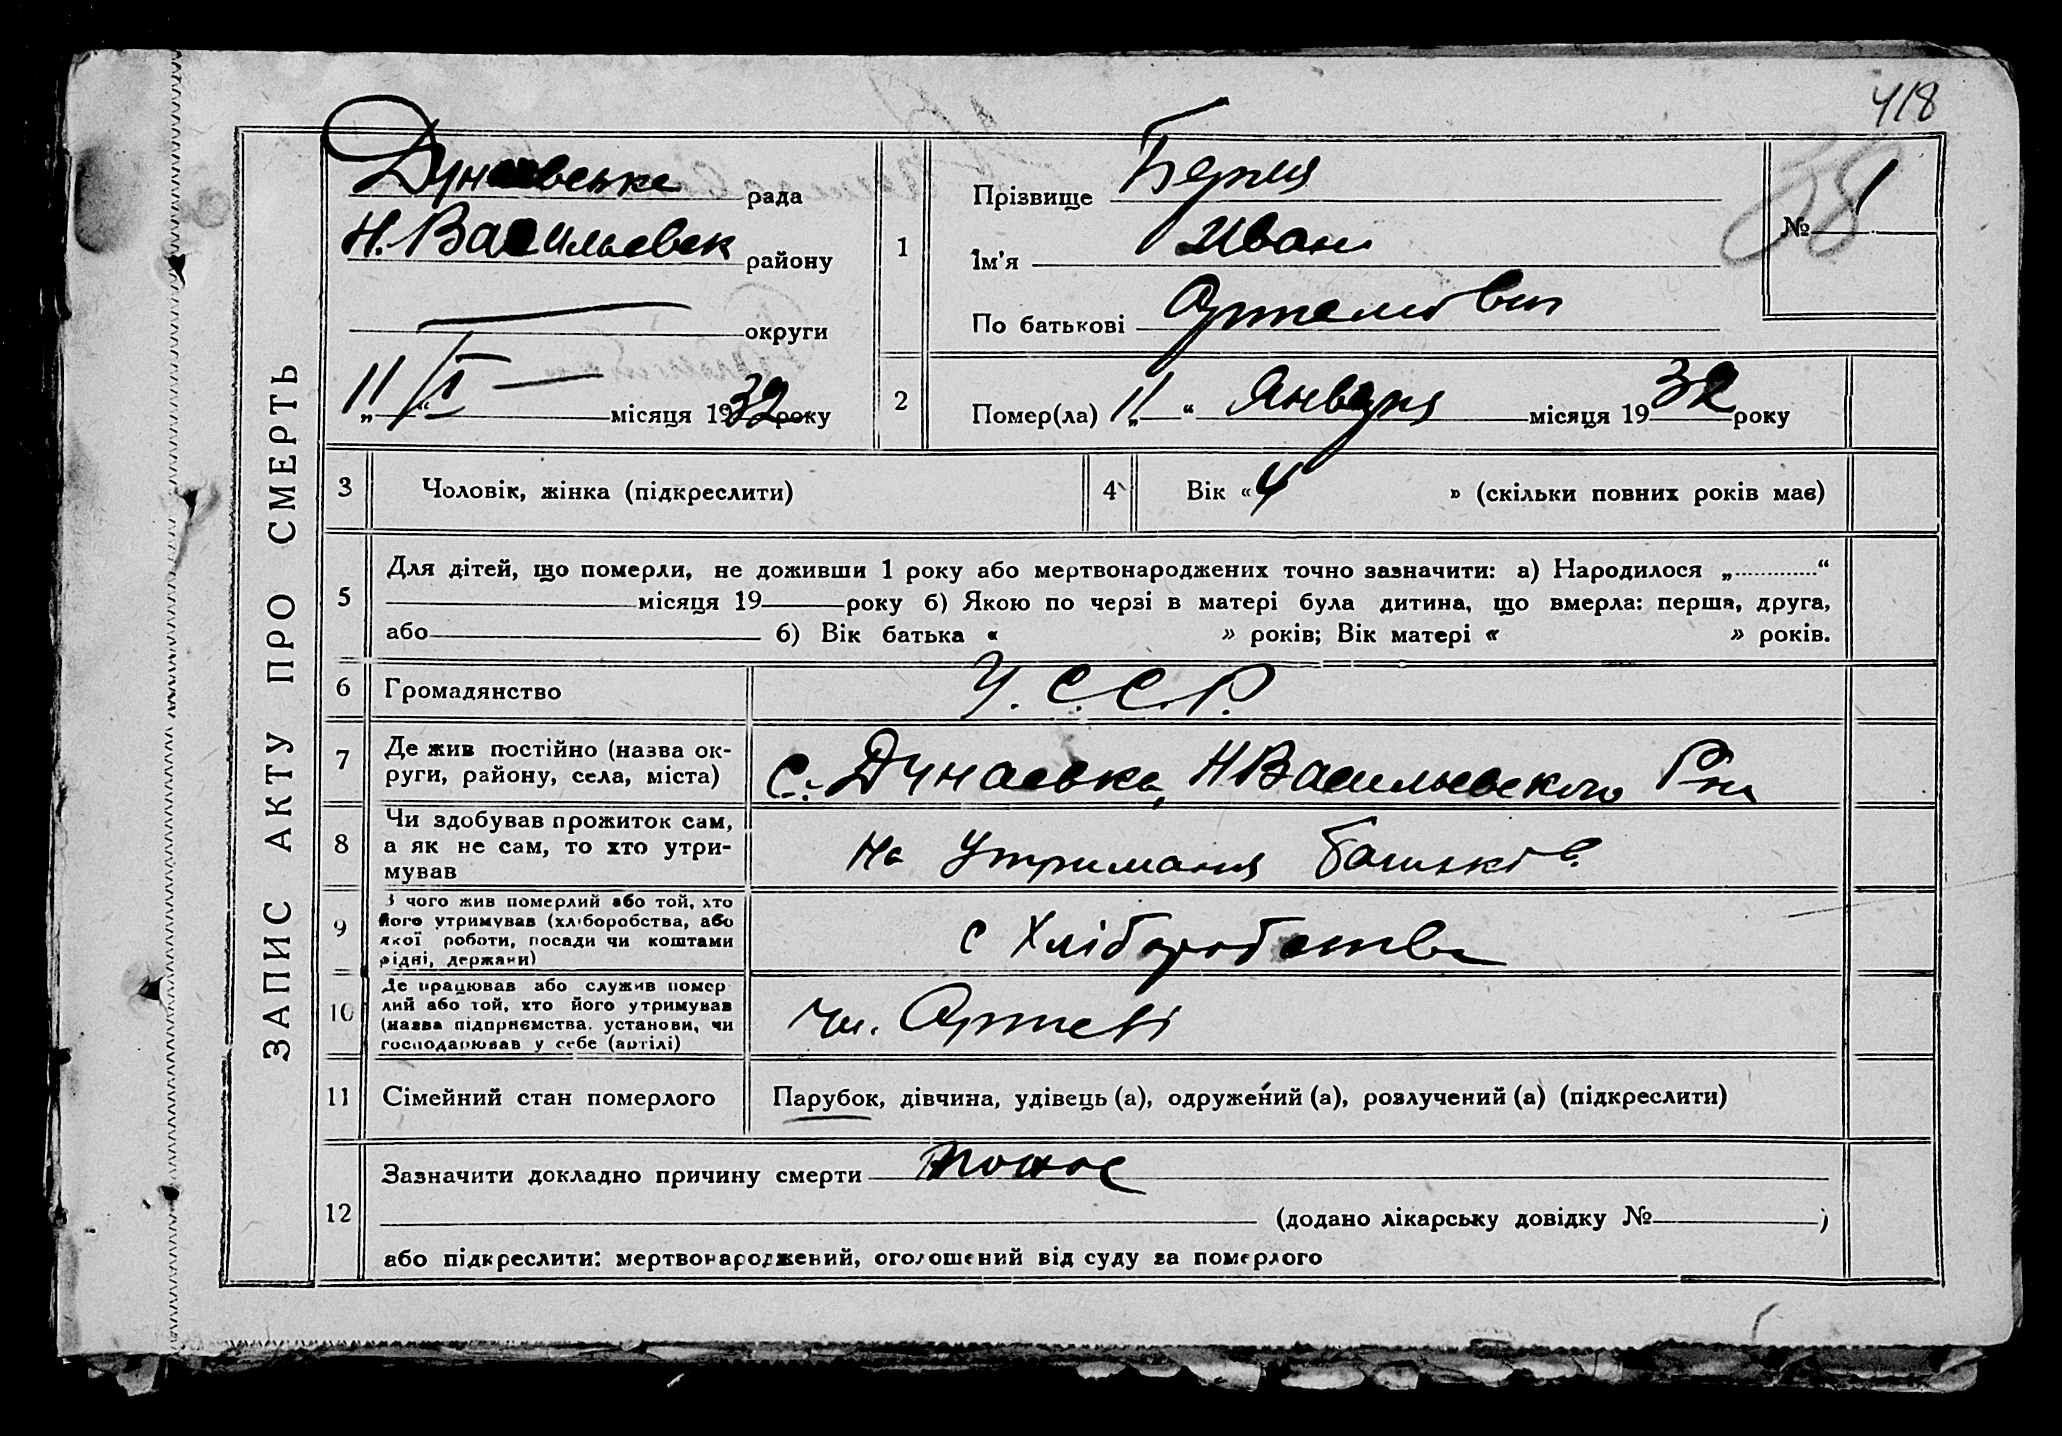 418
ЗАПИС АКТУ ПРО СМЕРТЬ
Дунаевське рада
Н. Васильевск району
округи
„11“ I місяця 1932 року
1
Прізвище
Ім'я Иван
По батькові
№ 1
58
2
Помер(ла) „11“ Января місяця 1932 року
3
Чоловік, жінка (підкреслити)
4
Вік «4 » (скільки повних років має)
5
Для дітей, що померли, не доживши 1 року або мертвонароджених точно зазначити: а) Народилося „ “
місяця 19 року б) Якою по черзі в матері була дитина, що вмерла: перша, друга,
або 6) Вік батька « » років; Вік матері « » років.
6
Громадянство
У.С.С.Р.
7
Де жив постійно (назва ок-
руги, району, села, міста)
с. Дунаевка, Н Васильевского Р-на
8
Чи здобував прожиток сам,
а як не сам, то хто утри-
мував
На утриманя батьків
9
З чого жив померлий або той, хто
його утримував (хліборобства, або
якої роботи, посади чи коштами
рідні, держави)
с Хліборобства
10
Де працював або служив помер
лий або той, хто його утримував
(назва підприємства, установи, чи
господарював у себе (артілі)
чл. Артелі
11
Сімейний стан померлого
Парубок, дівчина, удівець (а), одружений (а), розлучений (а) (підкреслити)
12
Зазначити докладно причину смерти понос
(додано лікарську довідку № )
або підкреслити: мертвонароджений, оголошений від суду за померлого